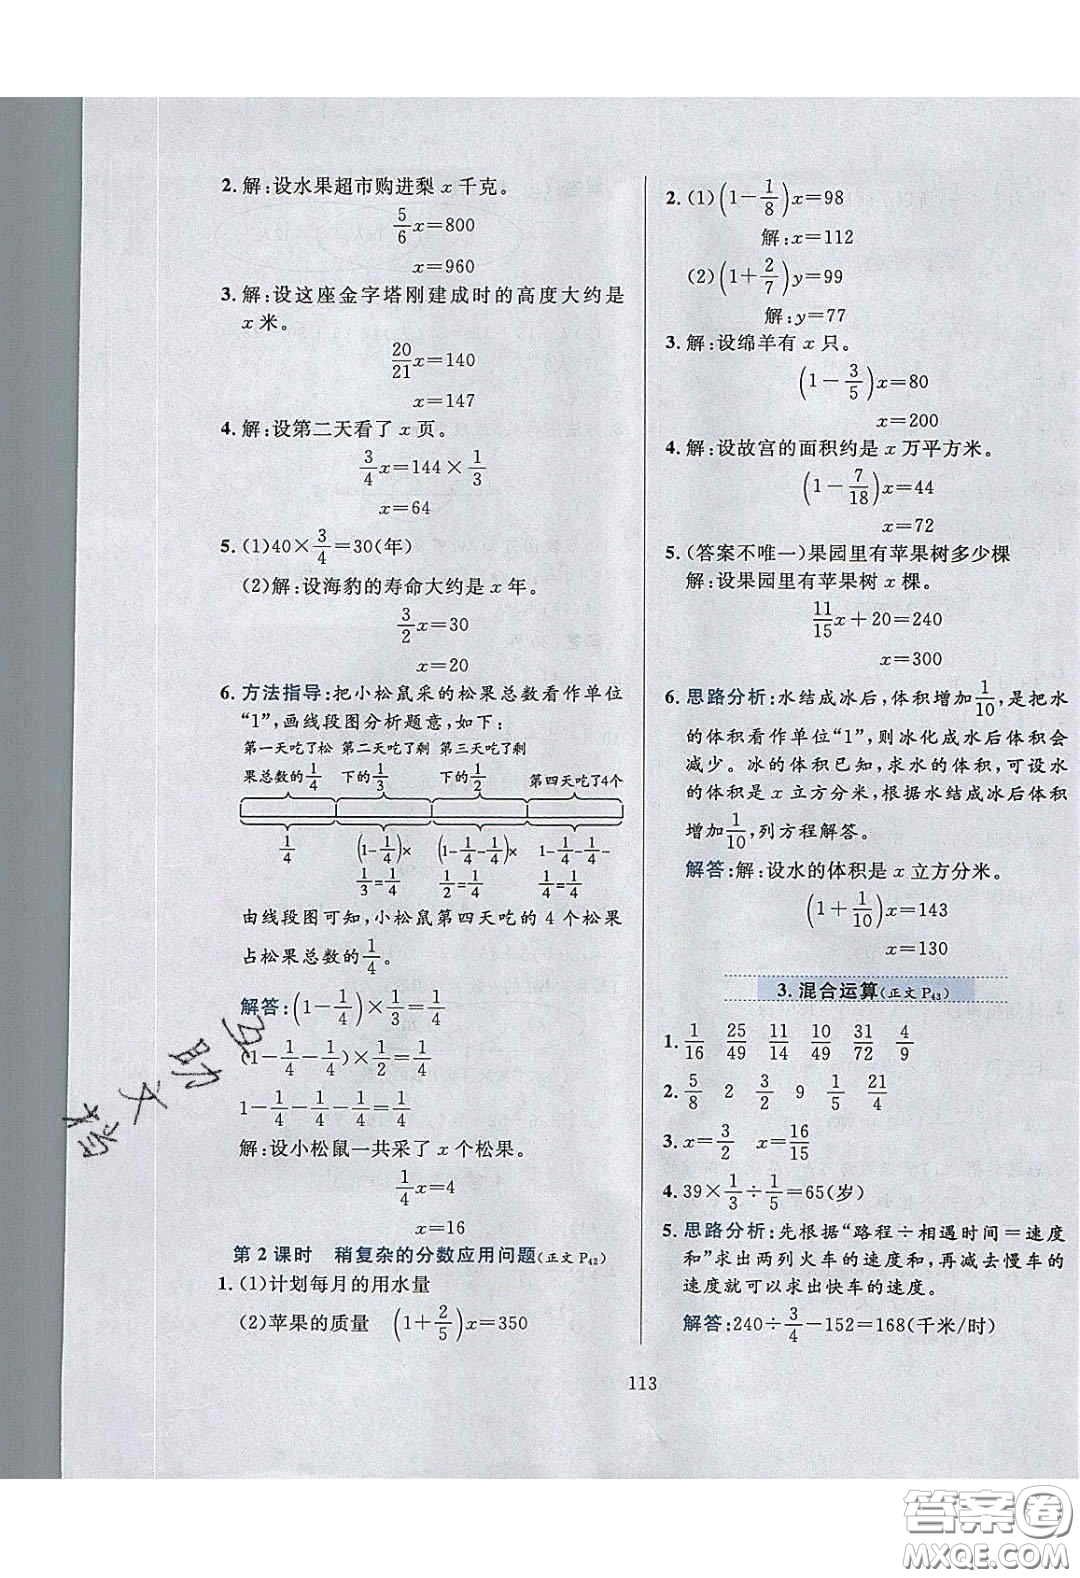 2. 解:设水果超市购进梨 x 千克。
5/6 x=800
x=960
3. 解:设这座金字塔刚建成时的高度大约是
x 米。
20/21 x=140
x=147
4. 解:设第二天看了 x 页。
3/4 x=144×1/3
x=64
5. (1)40×3/4=30(年)
(2)解:设海豹的寿命大约是 x 年。
3/2 x=30
x=20
6. 方法指导:把小松鼠采的松果总数看作单位
“1”,画线段图分析题意,如下:
第一天吃了松 第二天吃了剩 第三天吃了剩
果总数的1/4 下的1/3 下的1/2 第四天吃了4个
1/4 (1-1/4)× (1-1/4-1/4)× 1-1/4-1/4-
1/3=1/4 1/2=1/4 1/4=1/4
由线段图可知,小松鼠第四天吃的 4 个松果
占松果总数的1/4。
解答:(1-1/4)×1/3=1/4
(1-1/4-1/4)×1/2=1/4
1-1/4-1/4-1/4=1/4
解:设小松鼠一共采了 x 个松果。
1/4 x=4
x=16
第 2 课时 稍复杂的分数应用问题(正文 P42)
1. (1)计划每月的用水量
(2)苹果的质量 (1+2/5)x=350
2. (1)(1-1/8)x=98
解:x=112
(2)(1+2/7)y=99
解:y=77
3. 解:设绵羊有 x 只。
(1-3/5)x=80
x=200
4. 解:设故宫的面积约是 x 万平方米。
(1-7/18)x=44
x=72
5. (答案不唯一)果园里有苹果树多少棵
解:设果园里有苹果树 x 棵。
11/15 x+20=240
x=300
6. 思路分析:水结成冰后,体积增加1/10,是把水
的体积看作单位“1”,则冰化成水后体积会
减少。冰的体积已知,求水的体积,可设水
的体积是 x 立方分米,根据水结成冰后体积
增加1/10,列方程解答。
解答:解:设水的体积是 x 立方分米。
(1+1/10)x=143
x=130
3. 混合运算(正文 P43)
1. 1/16 25/49 11/14 10/49 31/72 4/9
2. 5/8 2 3/2 9 1/5 21/4
3. x=3/2 x=16/15
4. 39×1/3÷1/5=65(岁)
5. 思路分析:先根据“路程÷相遇时间=速度
和”求出两列火车的速度和,再减去慢车的
速度就可以求出快车的速度。
解答:240÷3/4-152=168(千米/时)
113
答案卷
MXQE.COM